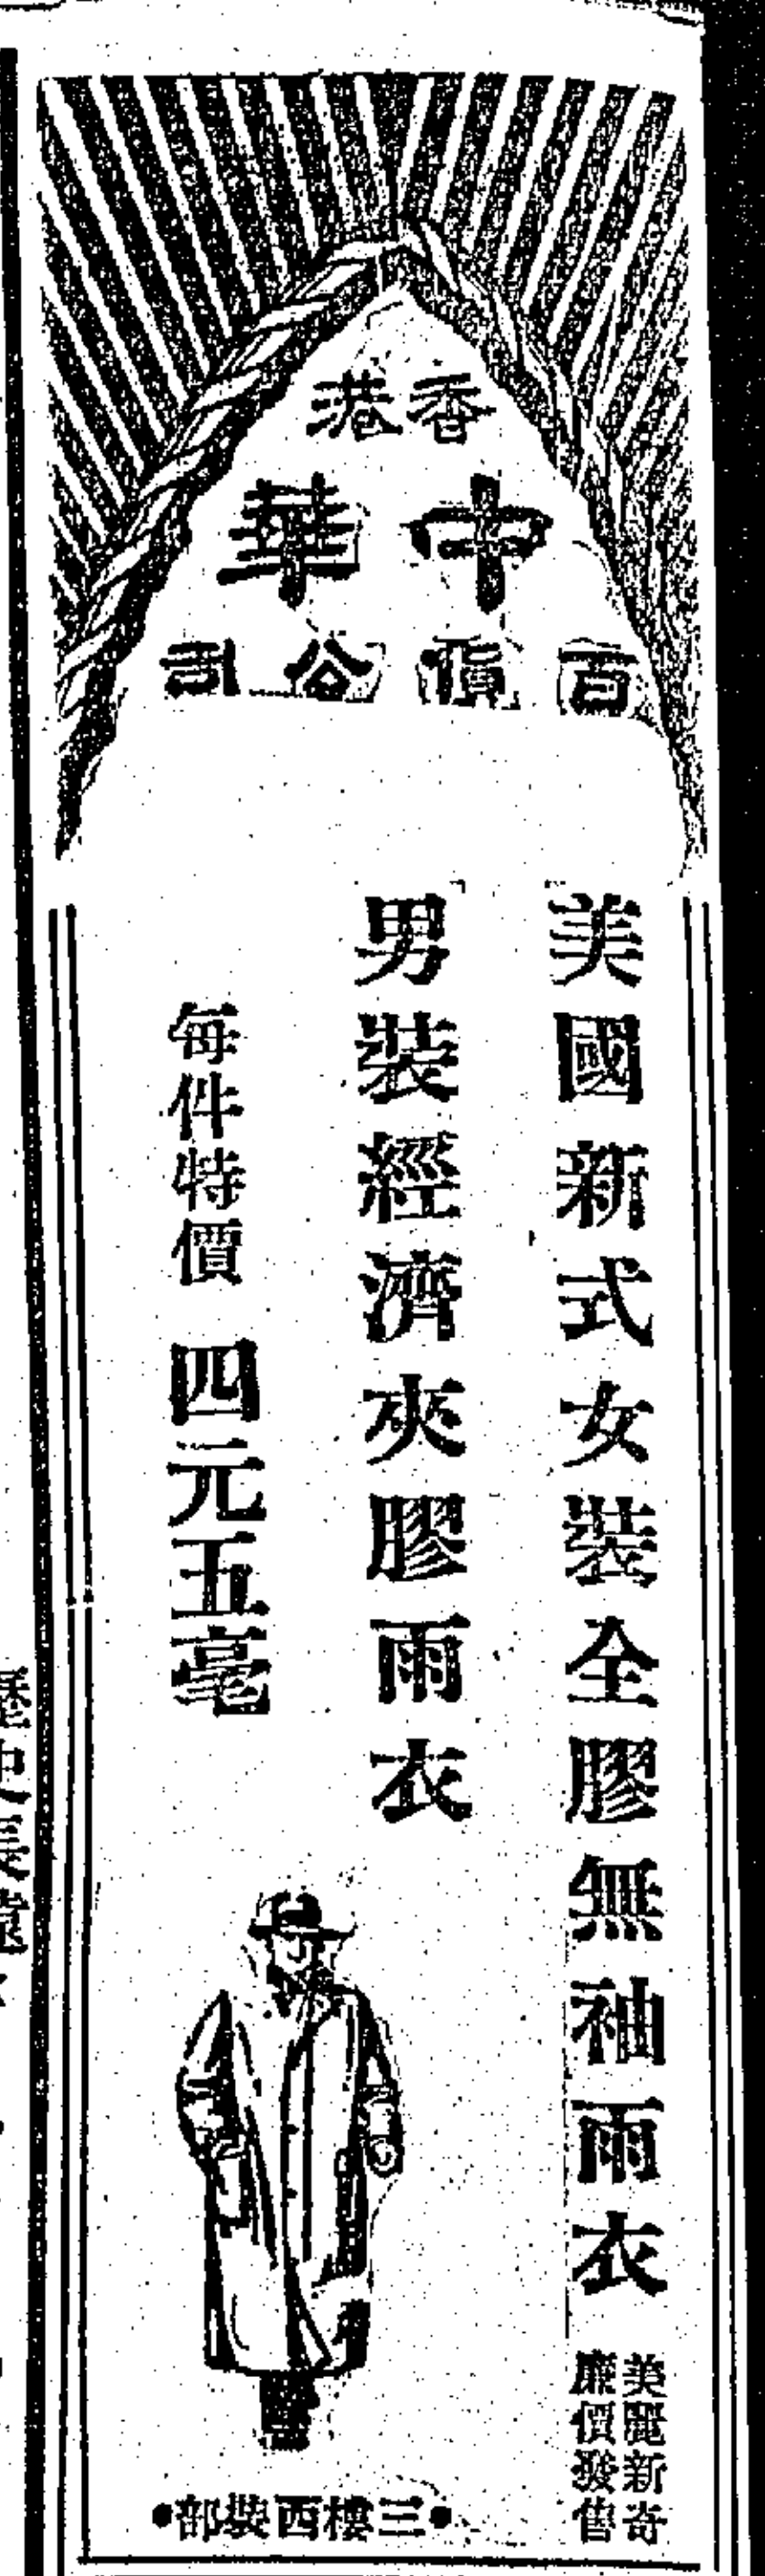 香港
中華
百貨公司
美國新式女裝全膠無袖雨衣
美麗新奇
廉價發售
男裝經濟夾膠雨衣
每件特價 四元五毫
•三樓西裝部•